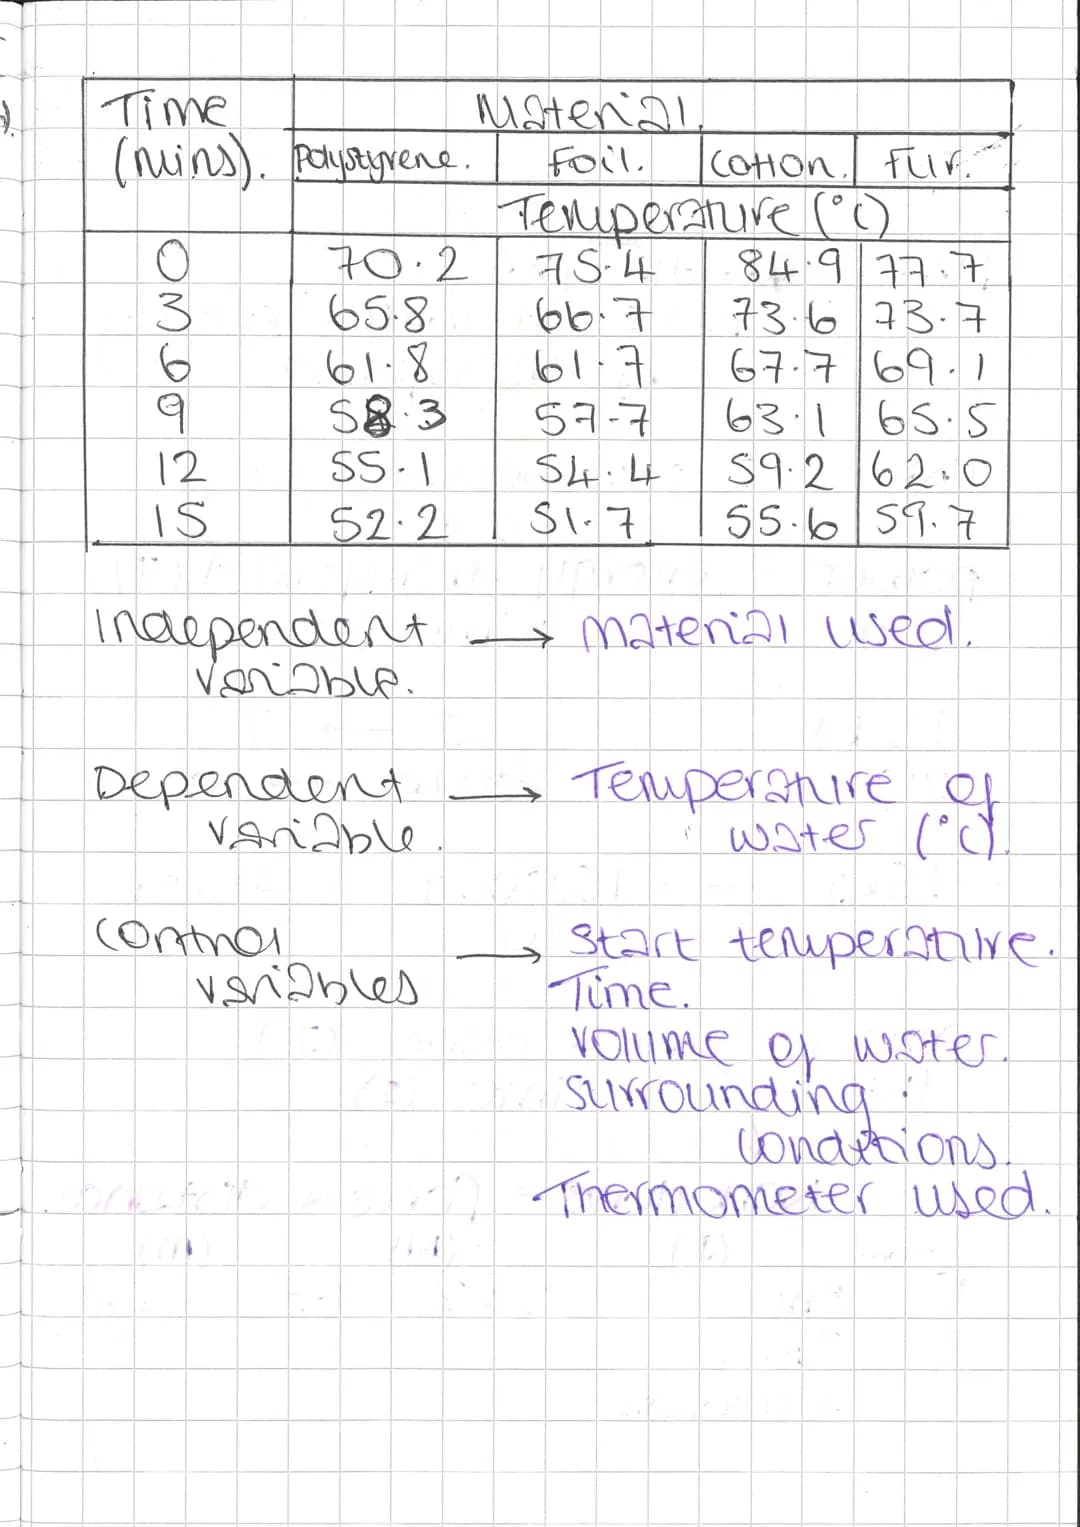 Time Material.
(mins). Polystyrene. Foil. Cotton. Fur.
Temperature (°C)
0 70.2 75.4 84.9 77.7
3 65.8 66.7 73.6 73.7
6 61.8 61.7 67.7 69.1
9 58.3 57.7 63.1 65.5
12 55.1 54.4 59.2 62.0
15 52.2 51.7 55.6 59.7
Independent → Material used.
variable.
Dependent → Temperature of
variable. water (°C).
Control → Start temperature.
variables Time.
Volume of water.
Surrounding
conditions.
Thermometer used.